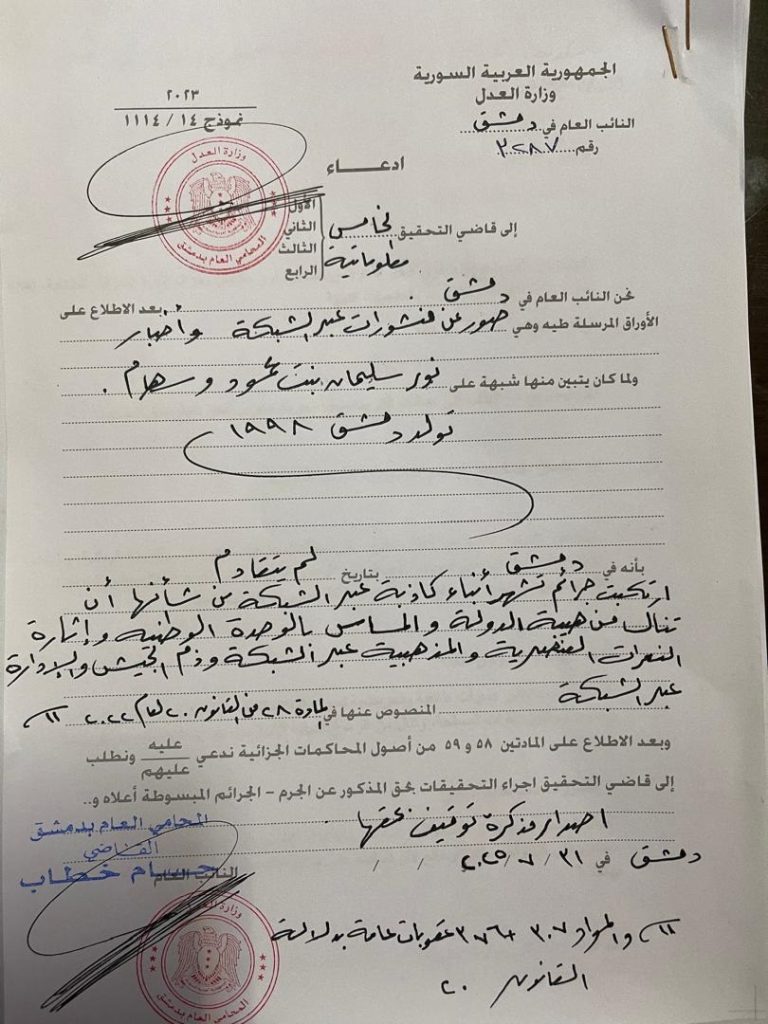 الجمهورية العربية السورية
وزارة العدل
النائب العام في دمشق
رقم ٣٢٨٧
٢٠٢٣
نموذج ١٤ / ١١١٤
ادعاء
وزارة العدل
المحامي العام بدمشق
إلى قاضي التحقيق الخامس
الأول
الثاني
الثالث
الرابع
معلوماتية
نحن النائب العام في دمشق بعد الاطلاع على
الأوراق المرسلة طيه وهي صور عن منشورات عبر الشبكة وأخبار
ولما كان يتبين منها شبهة على نور سليمان بنت محمود وسهام .
تولد دمشق ١٩٩٨
بأنه في دمشق بتاريخ لم يتقادم
ارتكبت جرائم نشر أنباء كاذبة عبر الشبكة من شأنها أن
تنال من هيبة الدولة والمساس بالوحدة الوطنية وإثارة
النعرات العنصرية والمذهبية عبر الشبكة وذم الجيش والإدارة
عبر الشبكة
المنصوص عنها في المادة ٢٨ من القانون ٢٠ لعام ٢٠٢٢
وبعد الاطلاع على المادتين ٥٨ و ٥٩ من أصول المحاكمات الجزائية ندعي عليه عليهم ونطلب
إلى قاضي التحقيق اجراء التحقيقات بحق المذكور عن الجرم - الجرائم المبسوطة أعلاه و..
اصدار مذكرة توقيف بحقها
دمشق في ٣١ / ٧ / ٢٠٢٥
/ /
المحامي العام بدمشق
القاضي
حسام خطاب
النائب العام
وزارة العدل
المحامي العام بدمشق
والمواد ٣٠٧ + ٣٧٦ عقوبات عامة بدلالة
القانون ٢٠